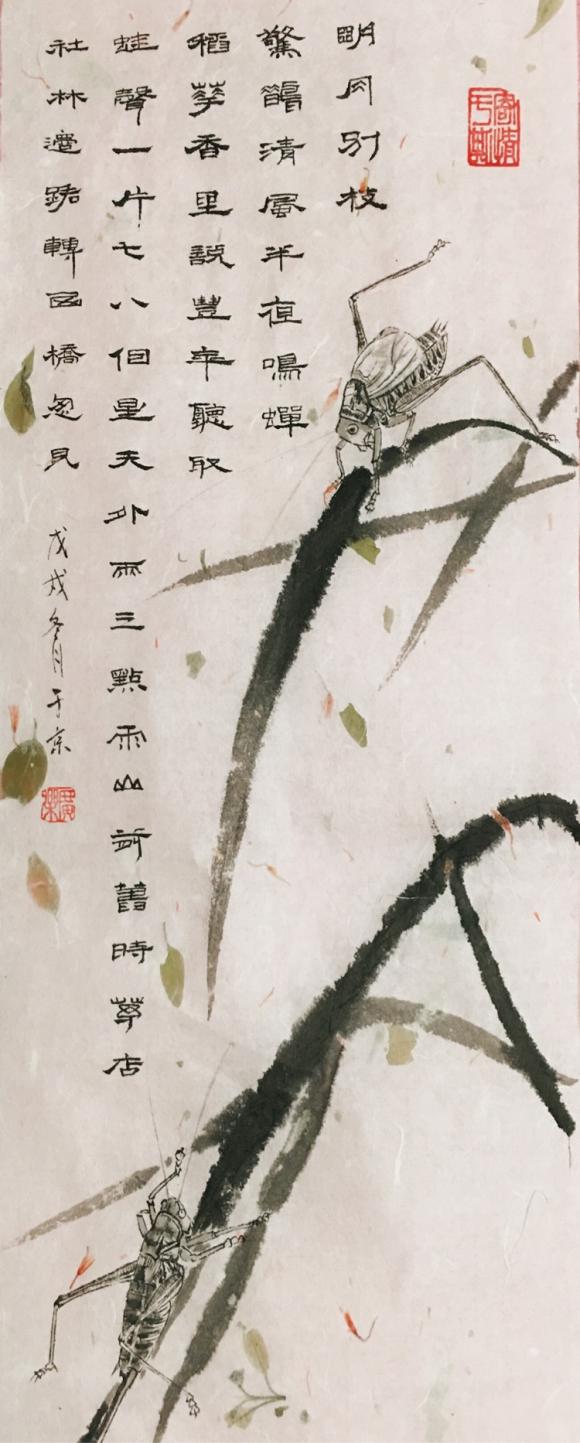 明月別枝
驚鵲清風半夜鳴蟬
稻華香里說豐年聽取
蛙聲一片七八個星天外兩三點雨山前舊時茅店
社林邊路轉橋忽見
戊戌冬月于京